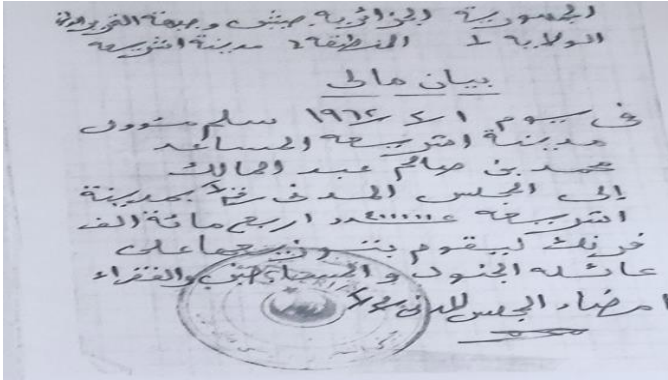 الجمهورية الجزائرية جيش وجبهة التحرير الوطني
الولاية 1 المنطقة 6 مدينة الشريعة
بيان مالي
في يوم 1962 سلم مسؤول
مدينة الشريعة المساعد
محمد بن صالح عبد المالك
إلى المجلس المدني بمدينة
الشريعة اربع مائة الف
فرنك ليقوم بتوزيعها على
عائلة الجنود والمساجين والفقراء
امضاء المجلس المدني